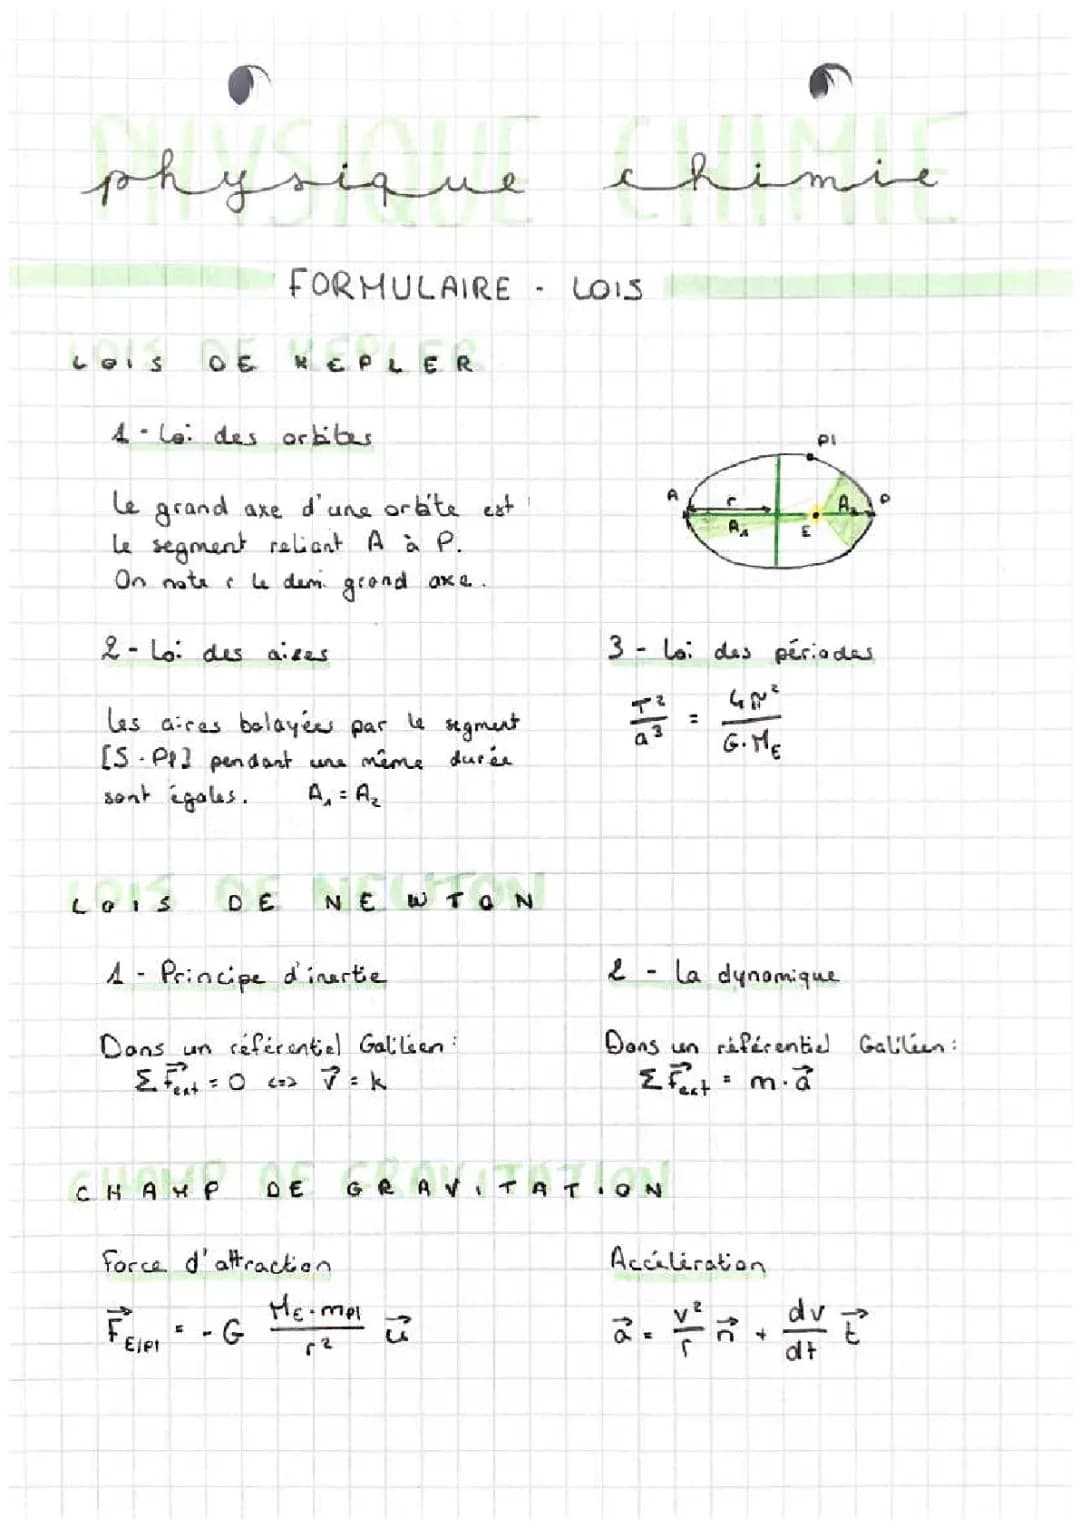 PHYSIQUE CHIMIE
physique chimie
FORMULAIRE - LOIS
LOIS DE KEPLER
1 - Loi des orbites
Le grand axe d'une orbite est
le segment reliant A à P.
On note r le demi grand axe.
Pl
A
r
A₁
E
A₂
P
2 - Loi des aires
Les aires balayées par le segment
[S - Pl] pendant une même durée
sont égales. A₁ = A₂
3 - Loi des périodes
T²/a³ = 4π²/G.M_E
LOIS DE NEWTON
1 - Principe d'inertie
Dans un référentiel Galiléen :
Σ F⃗ext = 0 <=> v⃗ = k
2 - La dynamique
Dans un référentiel Galiléen :
Σ F⃗ext = m.a⃗
CHAMP DE GRAVITATION
Force d'attraction
F⃗ E/Pl = - G M_E.mPl/r² u⃗
Accélération
a⃗ = v²/r n⃗ + dv/dt t⃗